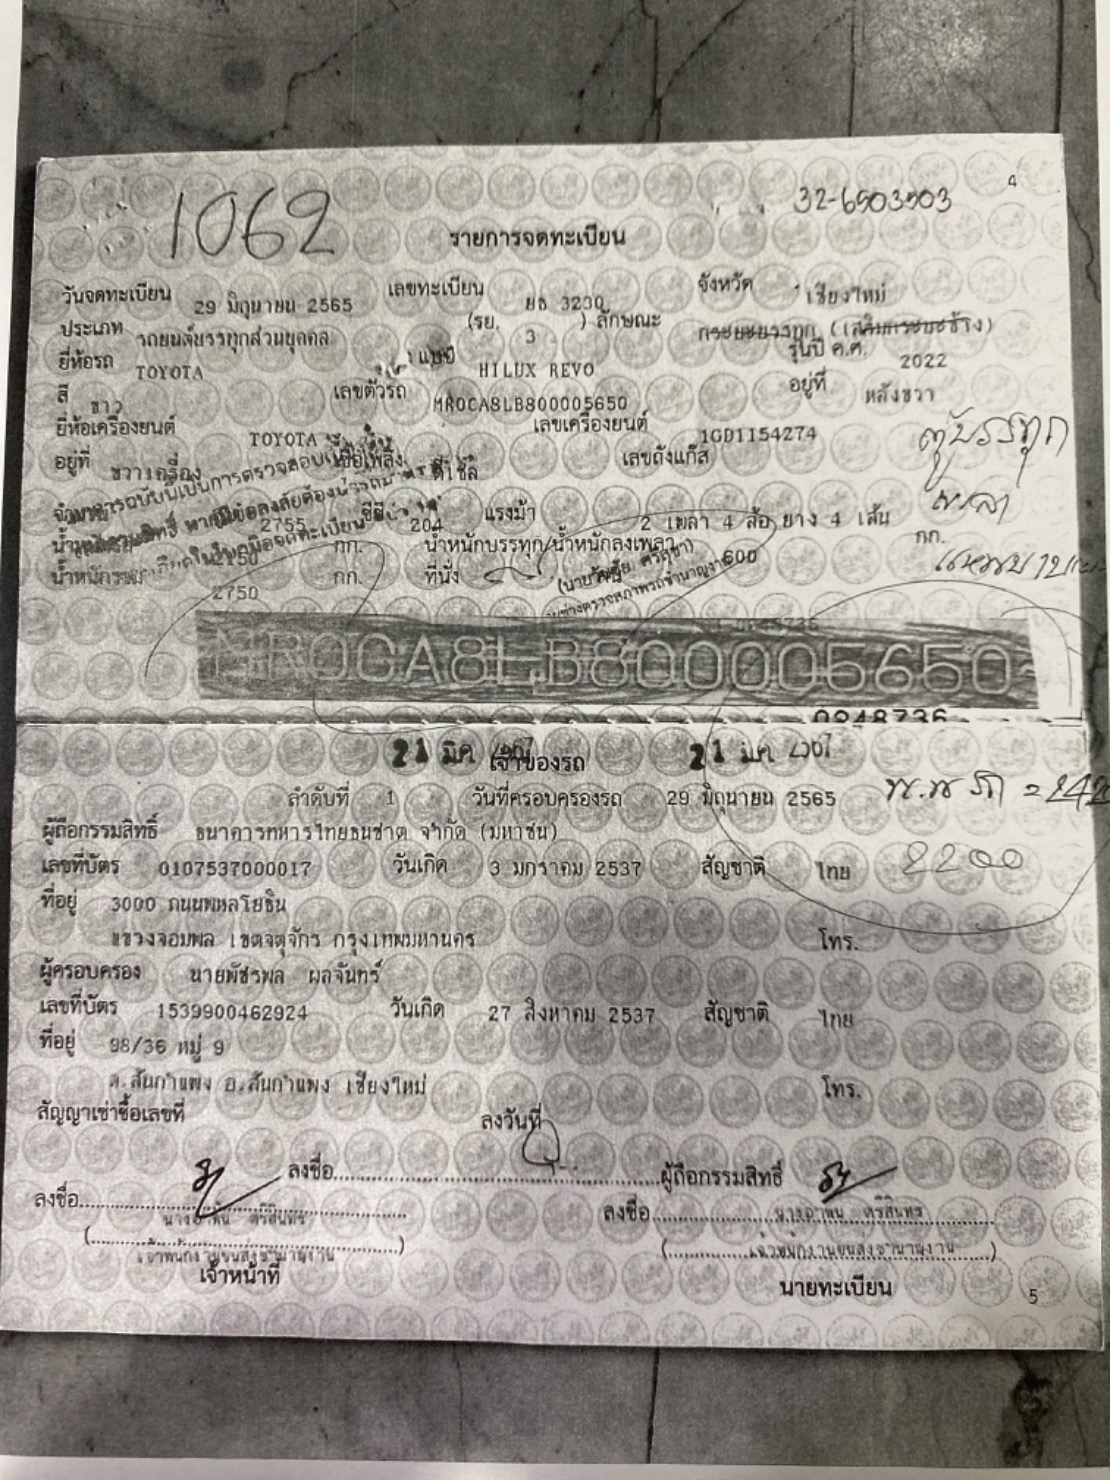 4
1062
32-6503503
รายการจดทะเบียน
วันจดทะเบียน 29 มิถุนายน 2565 เลขทะเบียน ยธ 3230 จังหวัด เชียงใหม่
ประเภท รถยนต์บรรทุกส่วนบุคคล (รย. 3 ) ลักษณะ กระบะบรรทุก (เสริมกระบะข้าง)
ยี่ห้อรถ TOYOTA HILUX REVO รุ่นปี ค.ศ. 2022
สี ขาว เลขตัวรถ MR0CA8LB800005650 อยู่ที่ หลังขวา
ยี่ห้อเครื่องยนต์ TOYOTA เลขเครื่องยนต์ 1GD1154274
ตู้บรรทุก
อยู่ที่ ขวาเครื่อง เชื้อเพลิง ดีเซล เลขถังแก๊ส
2755 ซีซี 204 แรงม้า 2 เพลา 4 ล้อ ยาง 4 เส้น
2150 กก. น้ำหนักบรรทุก/น้ำหนักลงเพลา 600 กก.
น้ำหนักรวม 2750 กก. ที่นั่ง
MR0CA8LB800005650
0248736
21 มีค 21 มีค 2567
เจ้าของรถ
ลำดับที่ 1 วันที่ครอบครองรถ 29 มิถุนายน 2565
ผู้ถือกรรมสิทธิ์ ธนาคารทหารไทยธนชาต จำกัด (มหาชน)
เลขที่บัตร 0107537000017 วันเกิด 3 มกราคม 2537 สัญชาติ ไทย
2200
ที่อยู่ 3000 ถนนพหลโยธิน
แขวงจอมพล เขตจตุจักร กรุงเทพมหานคร โทร.
ผู้ครอบครอง นายพัชรพล ผลจันทร์
เลขที่บัตร 1539900462924 วันเกิด 27 สิงหาคม 2537 สัญชาติ ไทย
ที่อยู่ 98/36 หมู่ 9
ต.สันกำแพง อ.สันกำแพง เชียงใหม่ โทร.
สัญญาเช่าซื้อเลขที่ ลงวันที่
ลงชื่อ ผู้ถือกรรมสิทธิ์
ลงชื่อ ลงชื่อ
เจ้าพนักงานขนส่งชำนาญงาน เจ้าพนักงานขนส่งชำนาญงาน
เจ้าหน้าที่ นายทะเบียน
5